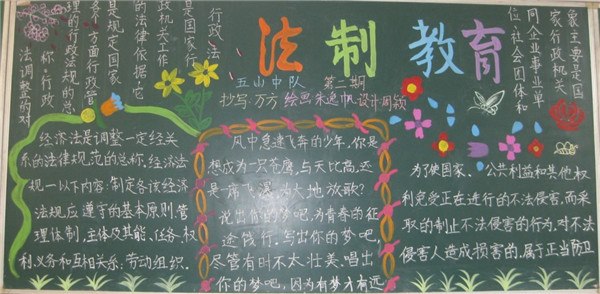 法制教育
五山中队 第二期
抄写:万方 绘画:朱逸帆 设计:周颖
行政法
是国家行
政机关工作
的法律依据它
是规定国家
各个方面行政管
理的行政法规的总
称。行政
法调整的对
象主要是国
家行政机关
同企业事业单
位、社会团体和
经济法是调整一定经济关
系的法律规范的总称。经济法
规一以下内容:制定各该经济
法规应遵守的基本原则、管
理体制、主体及其能、任务、权
利义务和互相关系;劳动组织。
风中急速飞奔的少年,你是
想成为一只苍鹰,与天比高,还
是一席飞瀑,为大地放歌?
说出你的梦吧,为青春的征
途饯行。写出你的梦吧,
尽管有时不太壮美。唱出
你的梦吧,因为有梦才有远
为了使国家、公共利益和其他权
利免受正在进行的不法侵害,而采
取的制止不法侵害的行为,对不法
侵害人造成损害的,属于正当防卫